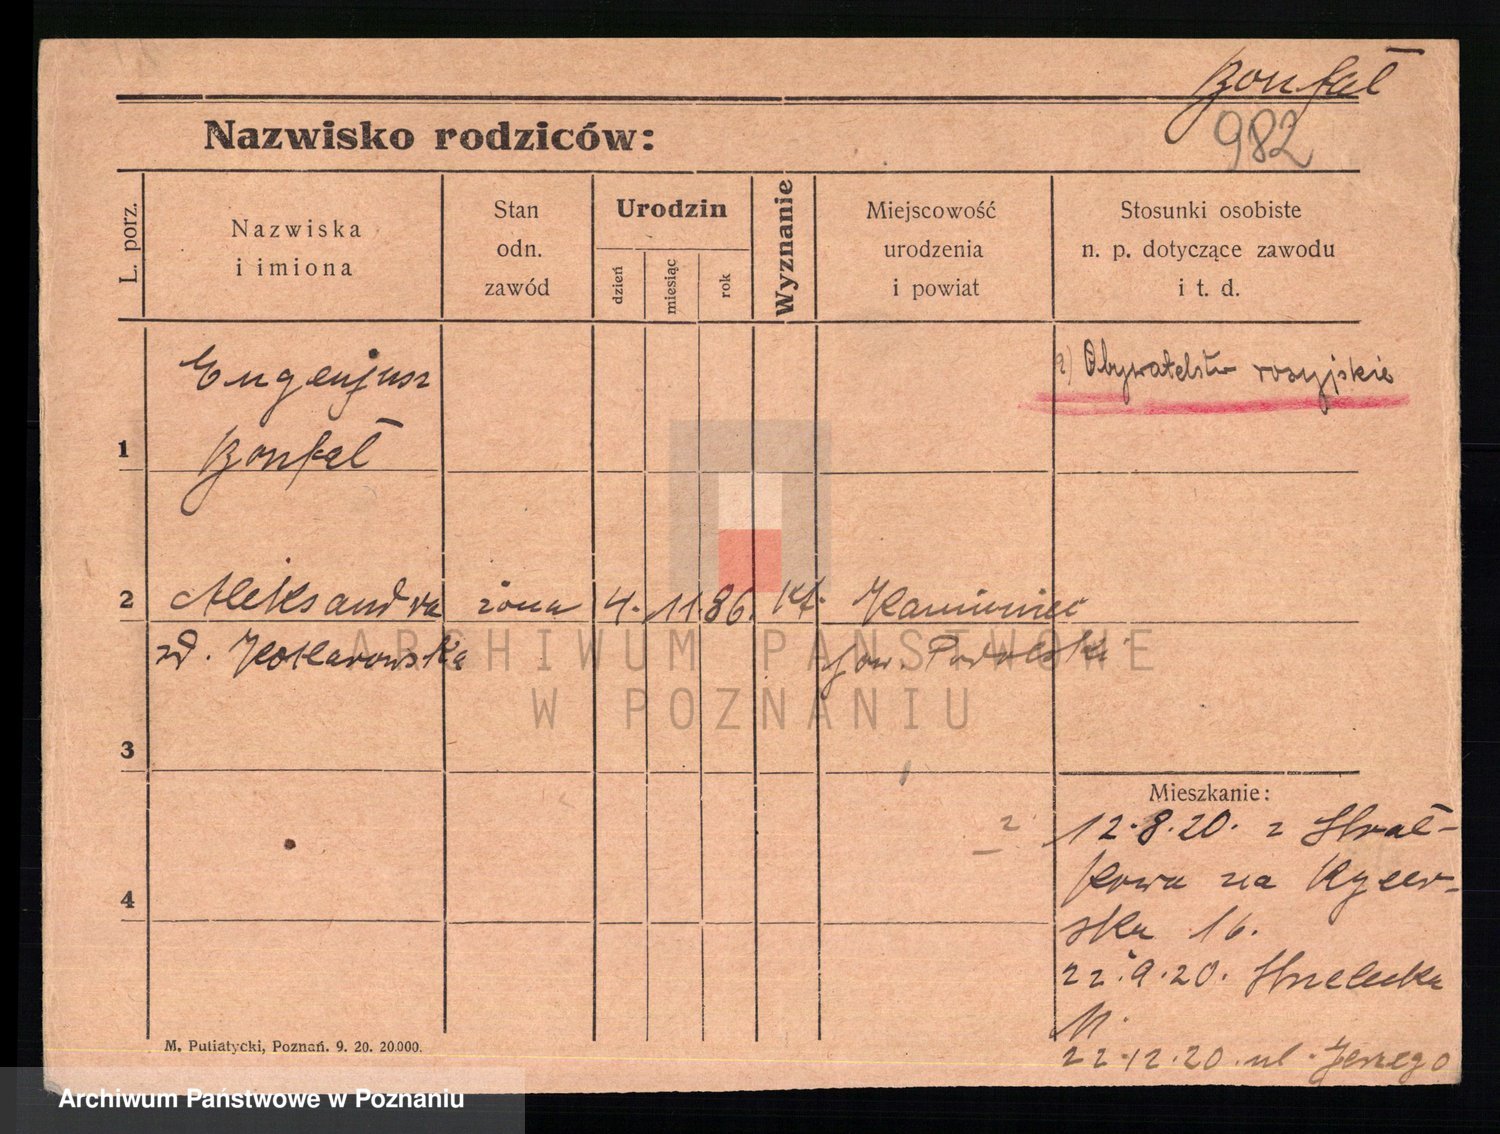 Bonfał
982
Nazwisko rodziców:
L. porz.
Nazwiska
i imiona
Stan
odn.
zawód
Urodzin
dzień
miesiąc
rok
Wyznanie
Miejscowość
urodzenia
i powiat
Stosunki osobiste
n. p. dotyczące zawodu
i t. d.
1
Eugenjusz
Bonfał
Obywatelstw rosyjskie
2
Aleksandra żona 4. 11. 86. kt. Kamieniec
zd. Kotlarowska Podolski
ARCHIWUM PAŃSTWOWE
W POZNANIU
3
4
Mieszkanie:
12.8.20. z Strał-
kowa na Rycer-
ska 16.
22.9.20. Strzelecka
11.
22.12.20. ul. Jerzego
M. Putiatycki, Poznań. 9. 20. 20.000.
Archiwum Państwowe w Poznaniu